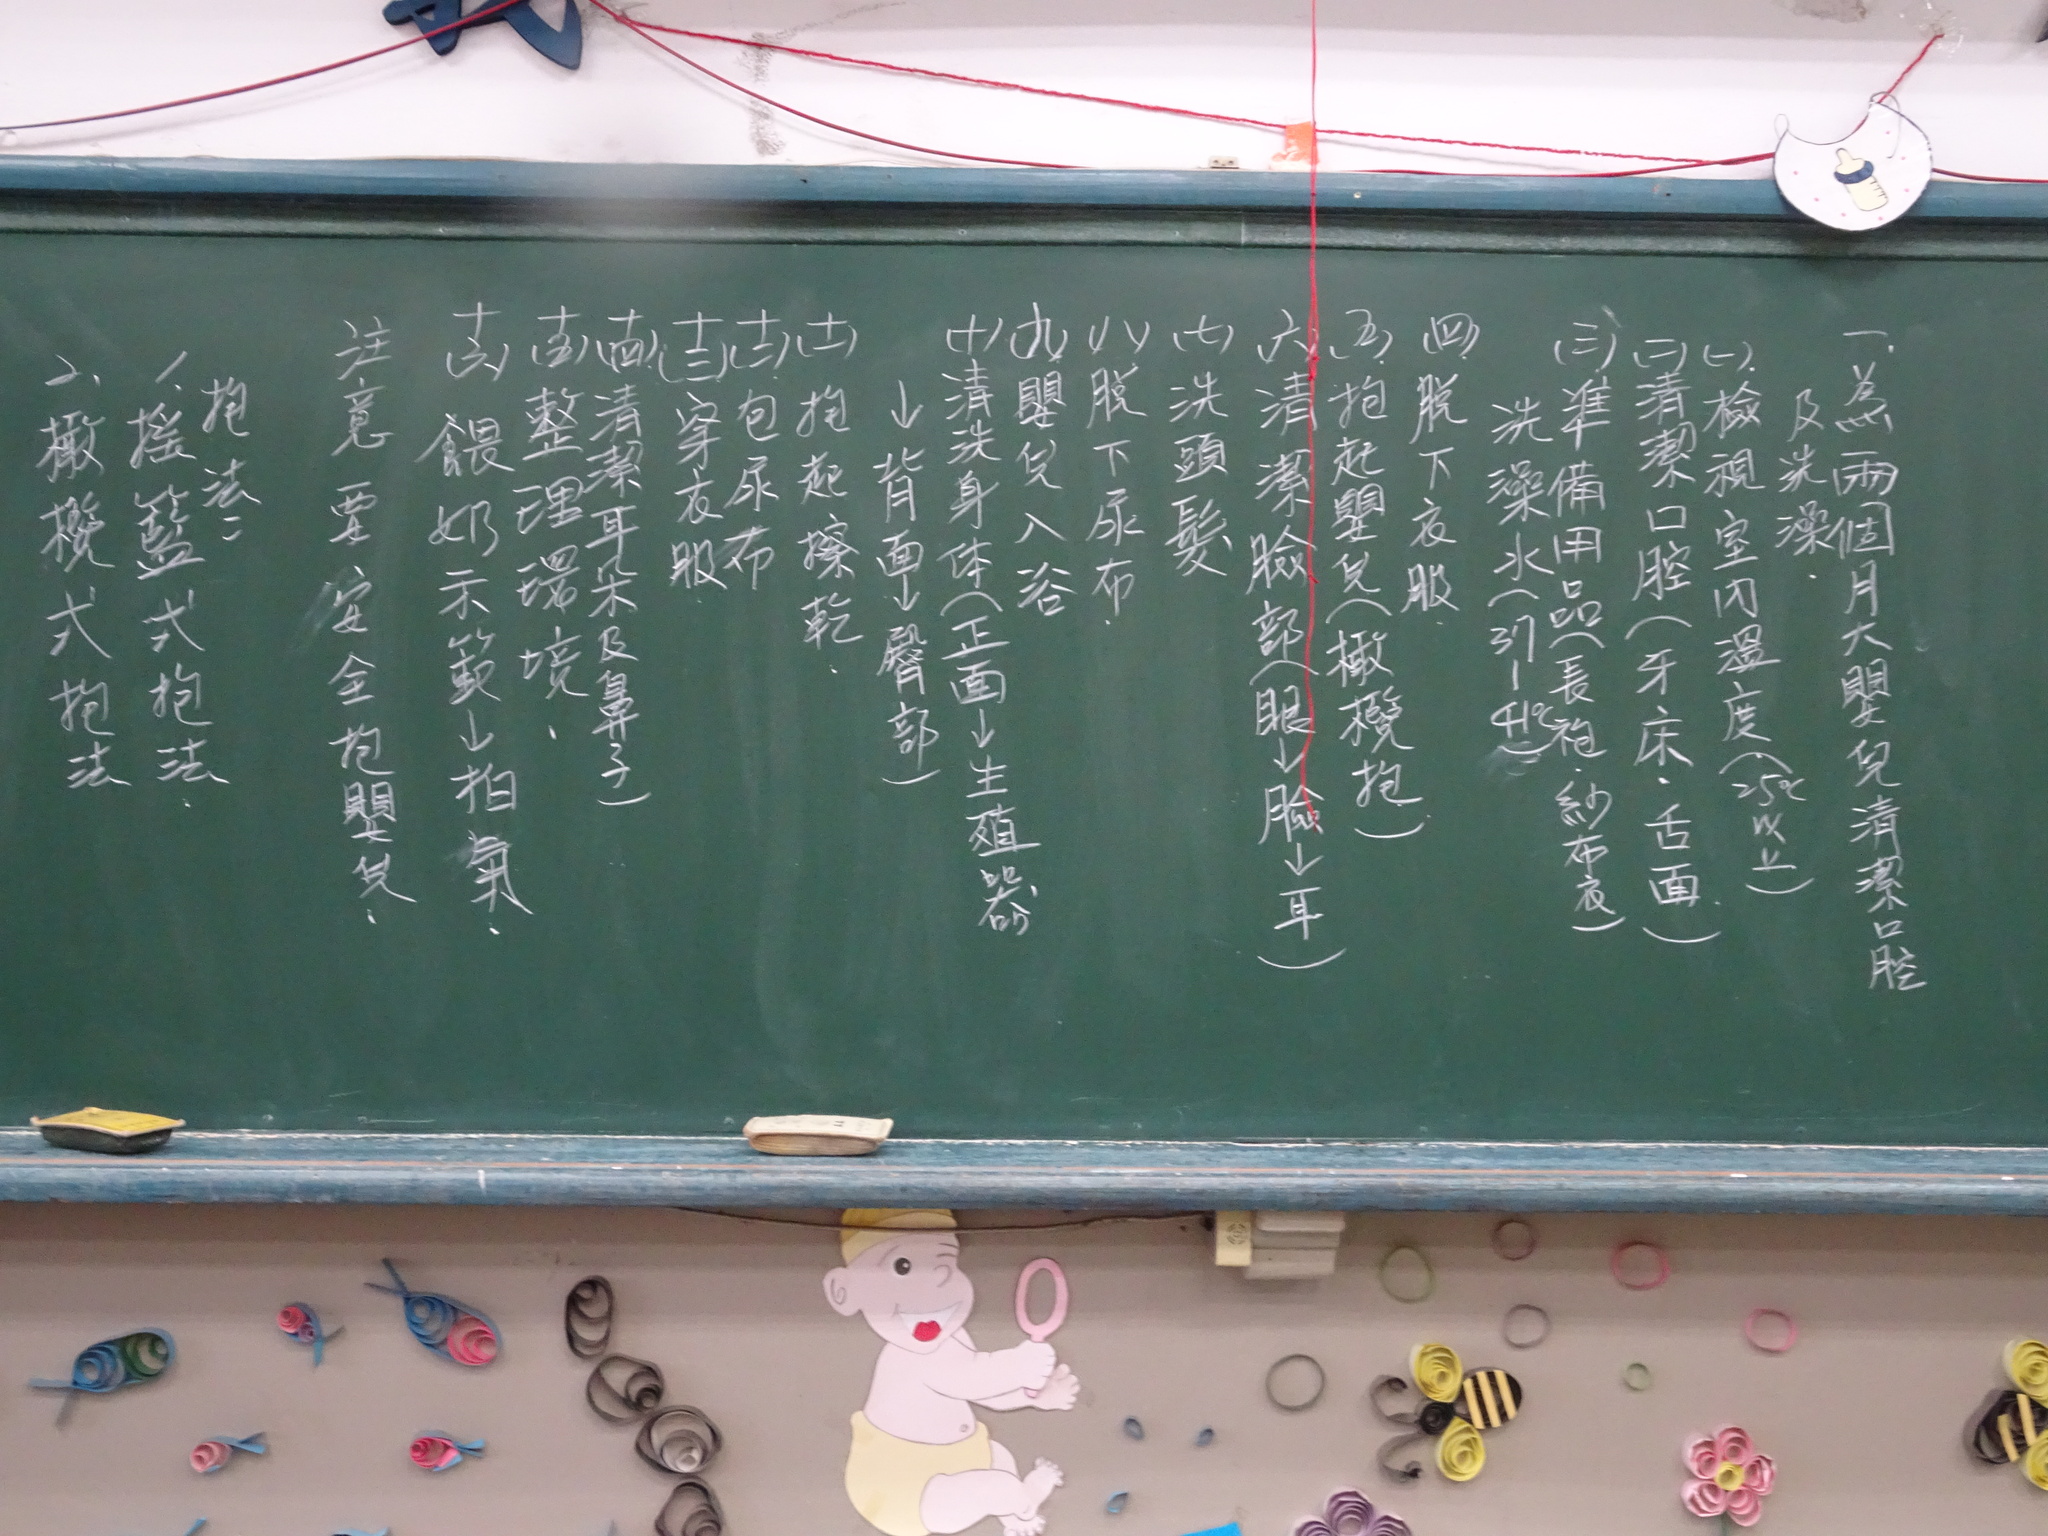 一、為兩個月大嬰兒清潔口腔
及洗澡.
(一)檢視室內溫度(25℃以上)
(二)清潔口腔(牙床.舌面.)
(三)準備用品(長袍.紗布衣)
洗澡水(37-41℃)
(四)脫下衣服.
(五)抱起嬰兒(橄欖抱)
(六)清潔臉部(眼→臉→耳)
(七)洗頭髮
(八)脫下尿布.
(九)嬰兒入浴
(十)清洗身体(正面→生殖器
→背面→臀部)
(十一)抱起擦乾.
(十二)包尿布
(十三)穿衣服.
(十四)清潔耳朵及鼻子)
(十五)整理環境.
(十六)餵奶示範→拍氣.
注意要安全抱嬰兒.
抱法:
1.搖籃式抱法.
2.橄欖式抱法